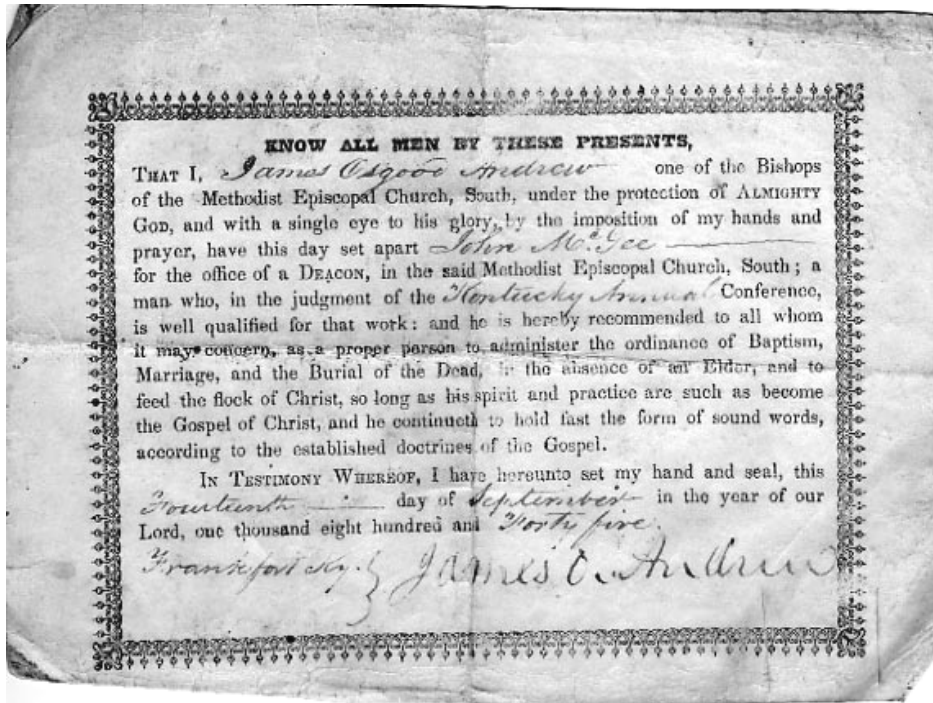 KNOW ALL MEN BY THESE PRESENTS,
THAT I, James Osgood Andrew one of the Bishops
of the Methodist Episcopal Church, South, under the protection of ALMIGHTY
GOD, and with a single eye to his glory, by the imposition of my hands and
prayer, have this day set apart John McGee
for the office of a DEACON, in the said Methodist Episcopal Church, South; a
man who, in the judgment of the Kentucky Annual Conference,
is well qualified for that work: and he is hereby recommended to all whom
it may concern, as a proper person to administer the ordinance of Baptism,
Marriage, and the Burial of the Dead, in the absence of an Elder, and to
feed the flock of Christ, so long as his spirit and practice are such as become
the Gospel of Christ, and he continueth to hold fast the form of sound words,
according to the established doctrines of the Gospel.
IN TESTIMONY WHEREOF, I have hereunto set my hand and seal, this
Fourteenth day of September in the year of our
Lord, one thousand eight hundred and Forty five.
Frankfort Ky. } James O. Andrew